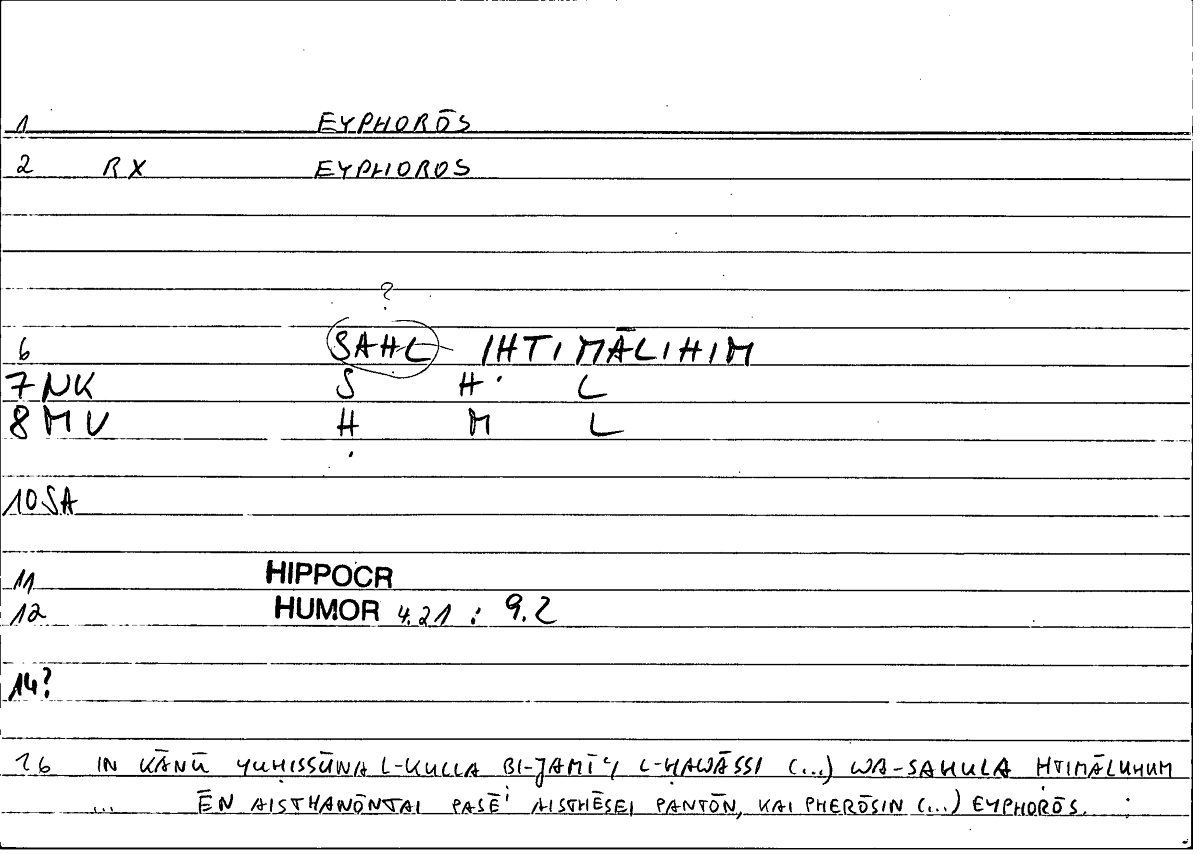 1 EYPHORŌS
2 RX EYPHOROS
?
6 SAHL IḤTIMĀLIHIM
7 NK S H L
8 MV Ḥ M L
10 SA
11 HIPPOCR
12 HUMOR 4.21 : 9.2
14?
16 IN KĀNŪ YUḤISSŪNA L-KULLA BI-JAMĪʿI L-ḤAWĀSSI (...) WA-SAHULA ḤTIMĀLUHUM
... ĒN AISTHANŌNTAI PASĒⁱ AISTHĒSEI PANTŌN, KAI PHERŌSIN (...) EYPHORŌS.